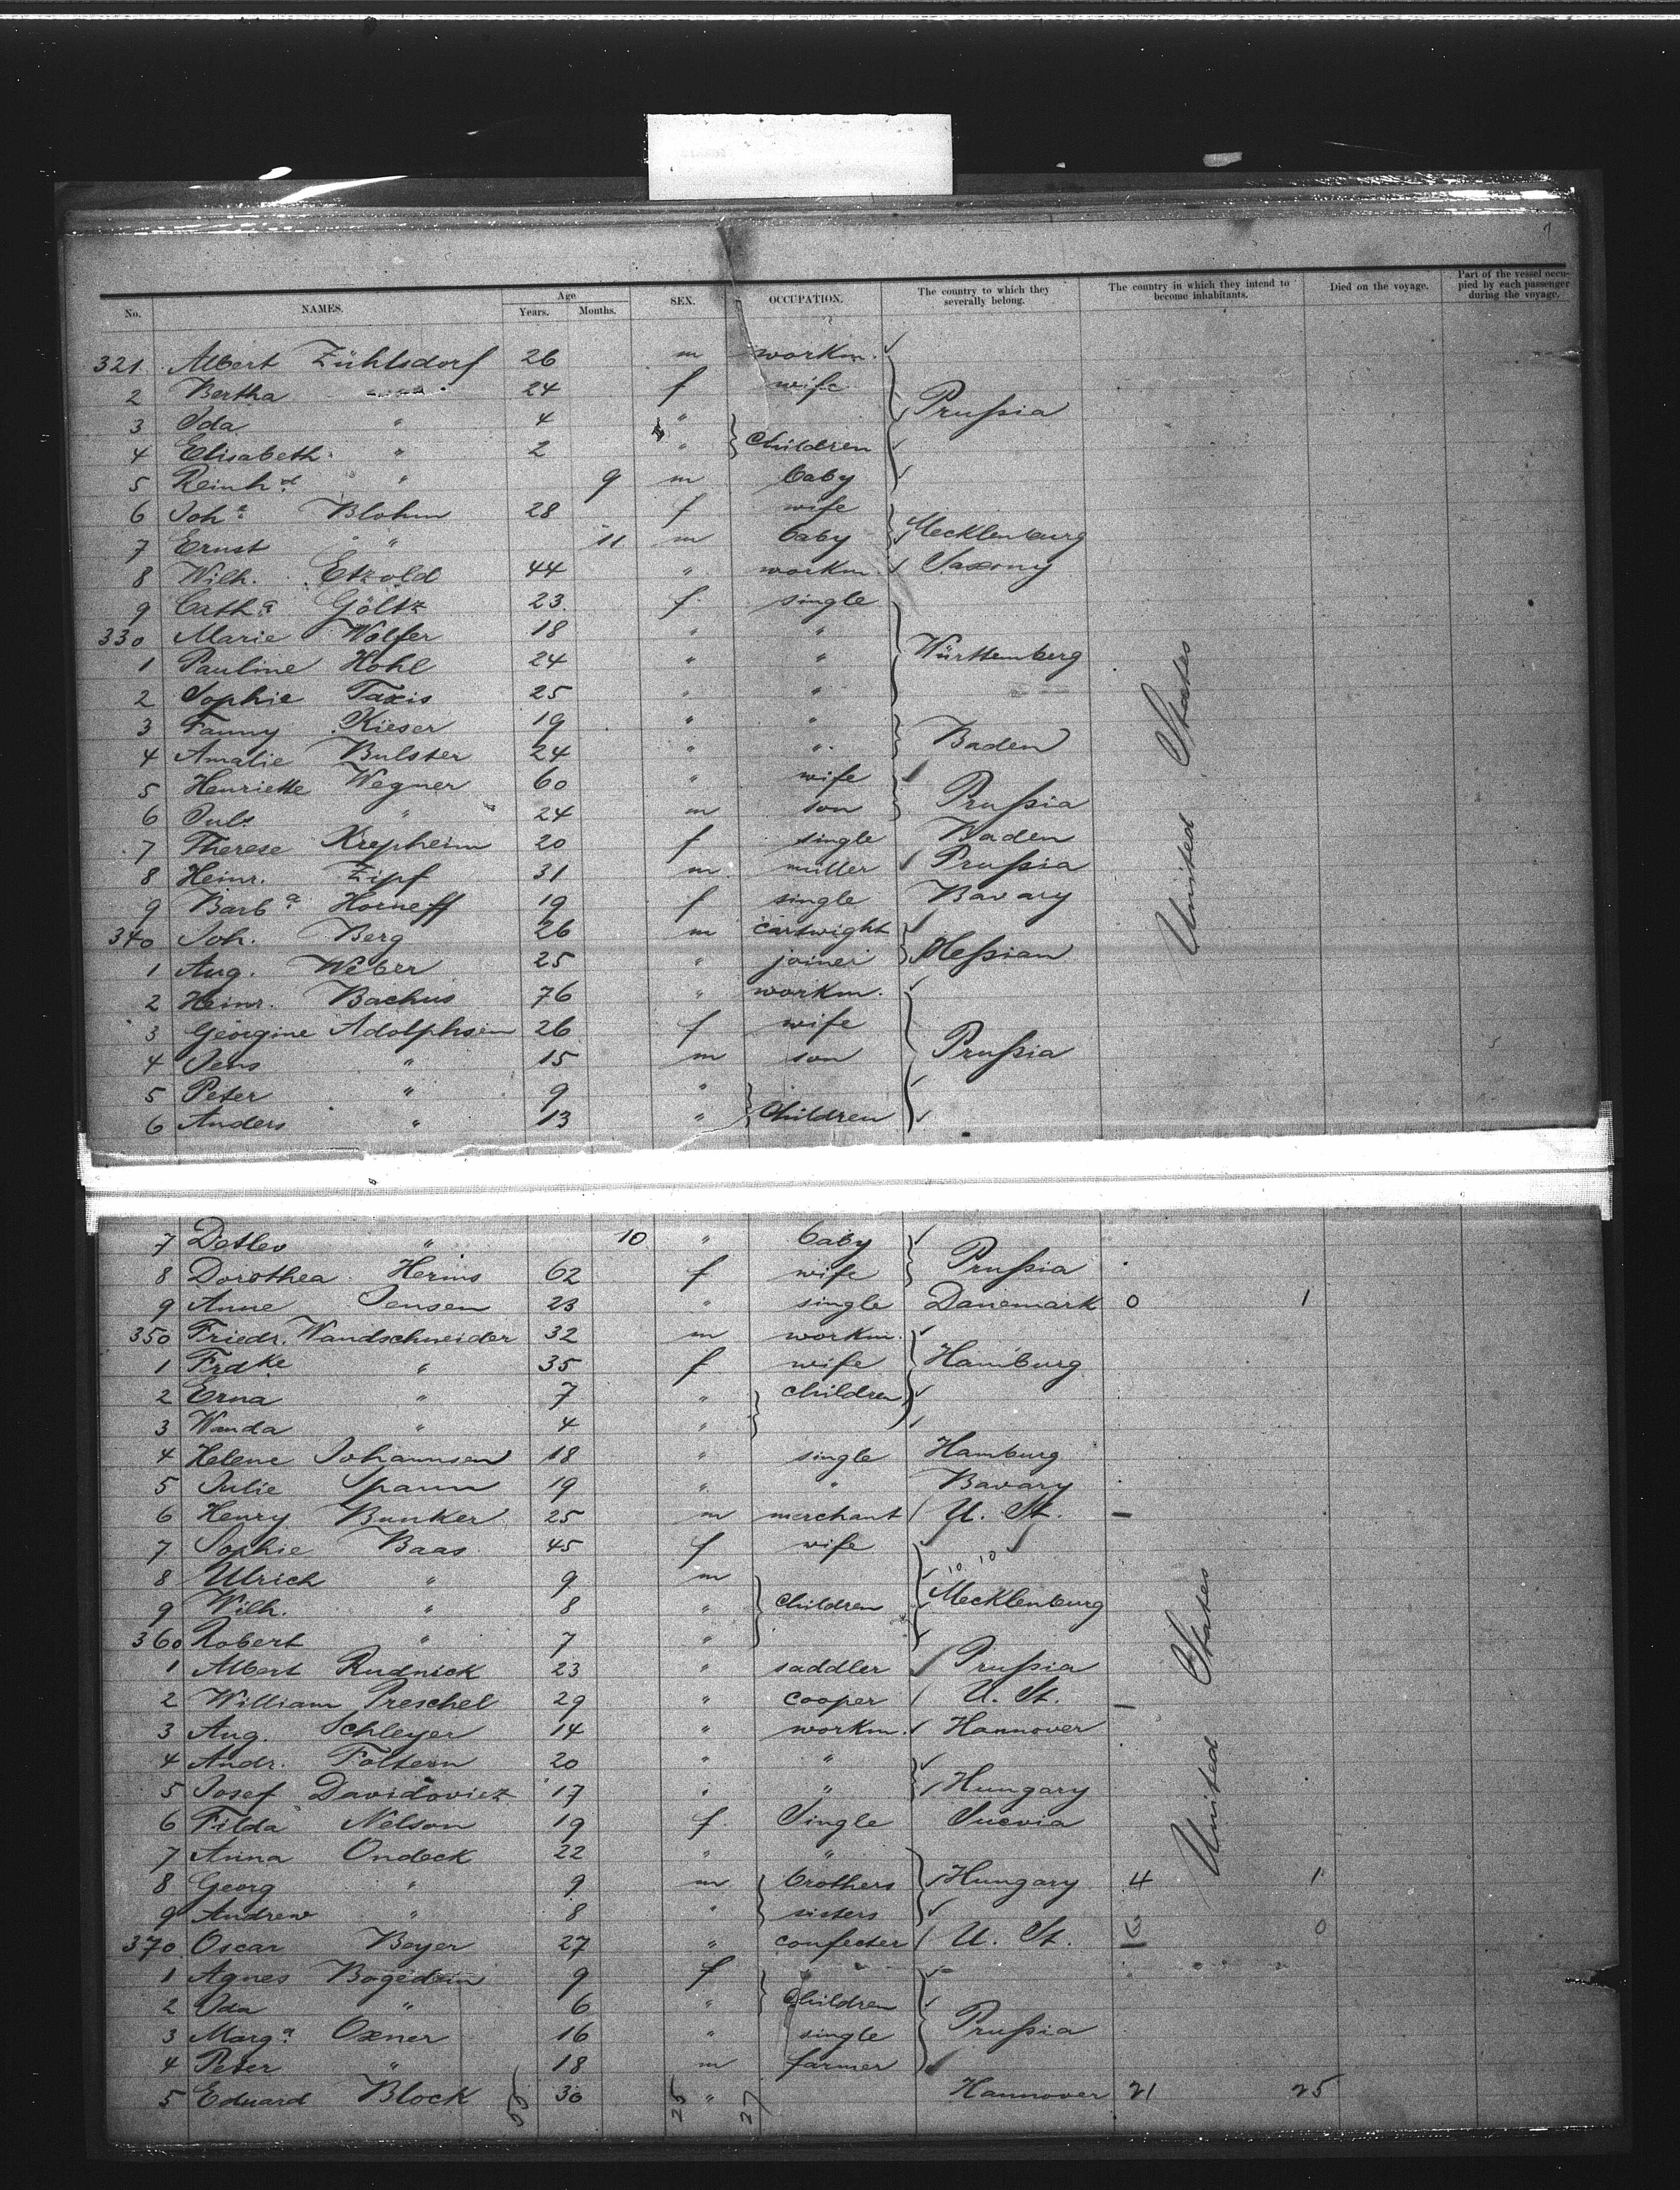 No. NAMES. Age Years. Months. SEX. OCCUPATION. The country to which they severally belong. The country in which they intend to become inhabitants. Died on the voyage. Part of the vessel occupied by each passenger during the voyage.
321 Albert Zühlsdorf 26 m workm.
2 Bertha " 24 f wife Prussia
3 Ida " 4 "
4 Elisabeth " 2 " Children
5 Reinhd. " 9 m baby
6 Joha. Blohm 28 f wife
7 Ernst " 11 m baby Mecklenburg
8 Wilh. Etzold 44 " workm. Saxony
9 Catha. Göltz 23 f single
330 Marie Wolfer 18 " "
1 Pauline Hohl 24 " " Württemberg
2 Sophie Taxis 25 " "
3 Fanny Kieser 19 " "
4 Amalie Bulster 24 " " Baden
5 Henriette Wegner 60 " wife
6 Juls. " 24 m son Prussia
7 Therese Krepheim 20 f single Baden
8 Heinr. Zipf 31 m miller Prussia
9 Barba. Horneff 19 f single Bavary
340 Joh. Berg 26 m cartwight
1 Aug. Weber 25 " joiner Hessian
2 Heinr. Bachus 76 " workm.
3 Georgine Adolphsen 26 f wife
4 Jens " 15 m son Prussia
5 Peter " 9 "
6 Anders " 13 " Children
United States
7 Detlev " 10 " baby
8 Dorothea Herms 62 f wife Prussia
9 Anne Jensen 23 " single Danemark 0 1
350 Friedr. Wandschneider 32 m workm.
1 Frdke " 35 f wife Hamburg
2 Erna " 7 " children
3 Wanda " 4 "
4 Helene Johannsen 18 " single Hamburg
5 Julie Spann 19 " " Bavary
6 Henry Bunker 25 m merchant U. St. —
7 Sophie Baas 45 f wife
8 Ulrich " 9 m
9 Wilh. " 8 " Children Mecklenburg
360 Robert " 7 "
1 Albert Rudnick 23 " saddler Prussia
2 William Preschel 29 " cooper U. St. —
3 Aug. Schleyer 14 " workm. Hannover
4 Andr. 20 " "
5 Josef Davidovicz 17 " " Hungary
6 Filda Nelson 19 f Single Suevia
7 Anna Ondeck 22 " "
8 Georg " 9 m brothers Hungary 4 1
9 Andrew " 8 " sisters
370 Oscar Beyer 27 " confecter U. St. 0
1 Agnes 9 f
2 Ida " 6 " Children
3 Marga. Oxner 16 " single Prussia
4 Peter " 18 m farmer
5 Eduard Block 30 " Hannover 21 25
United States
55 25 27